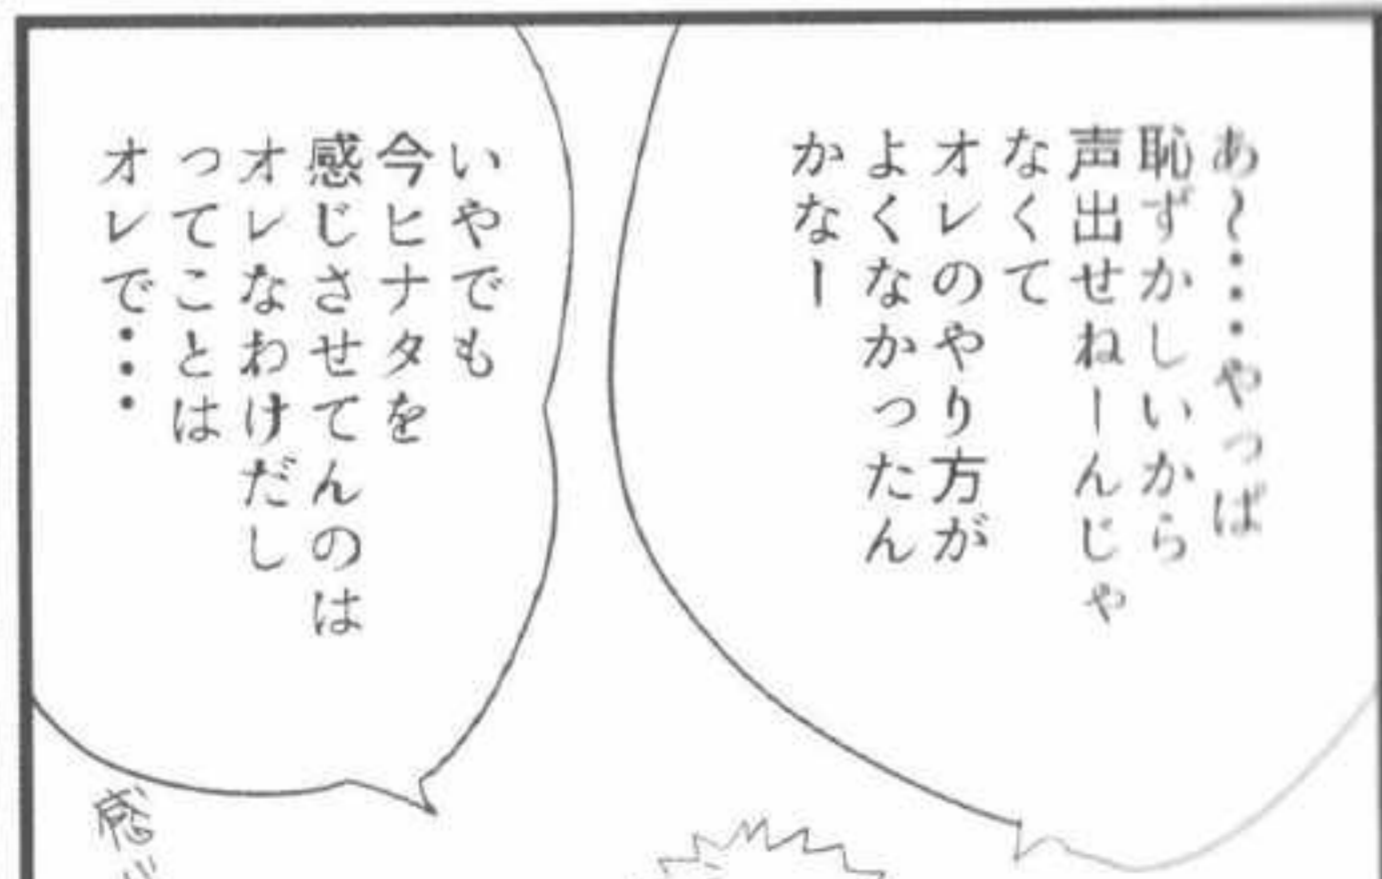 あ～・・・やっぱ
恥ずかしいから
声出せねーんじゃ
なくて
オレのやり方が
よくなかったん
かなー
いやでも
今ヒナタを
感じさせてんのは
オレなわけだし
ってことは
オレで・・・
感じ